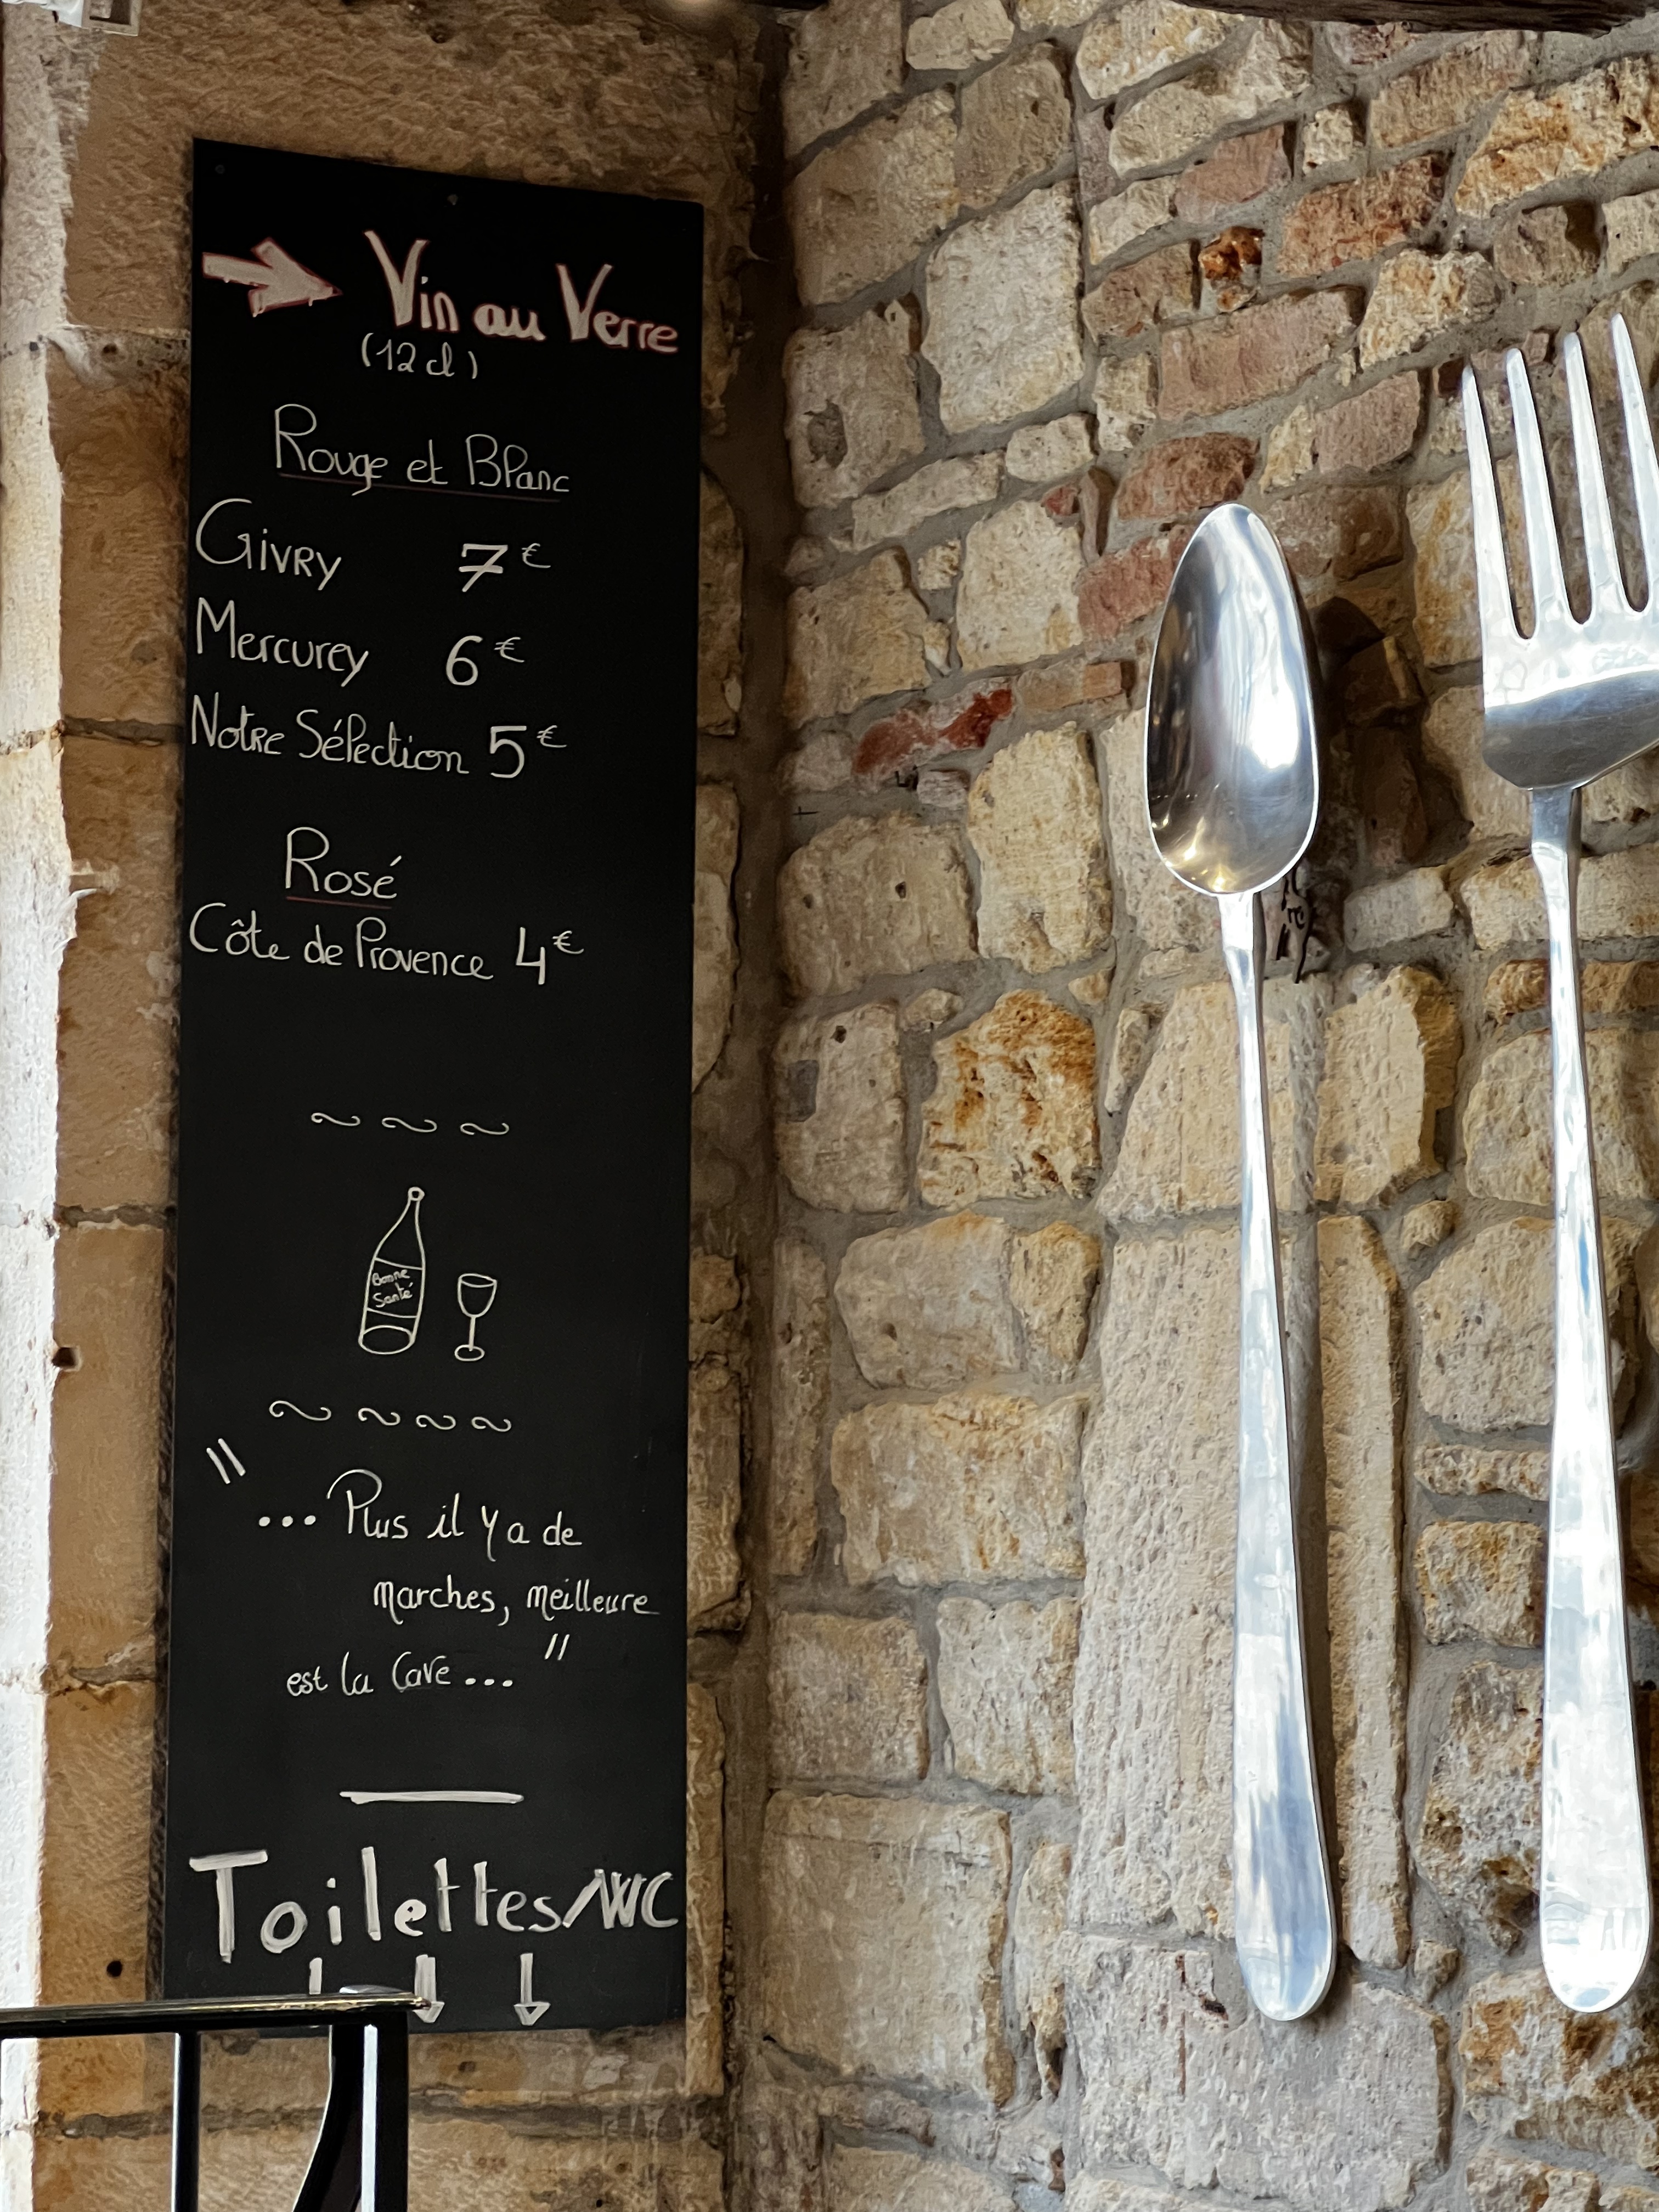 Vin au Verre
(12 cl)
Rouge et Blanc
Givry 7€
Mercurey 6€
Notre Sélection 5€
Rosé
Côte de Provence 4€
Bonne
Santé
"... Plus il y a de
marches, meilleure
est la Cave... "
Toilettes/WC